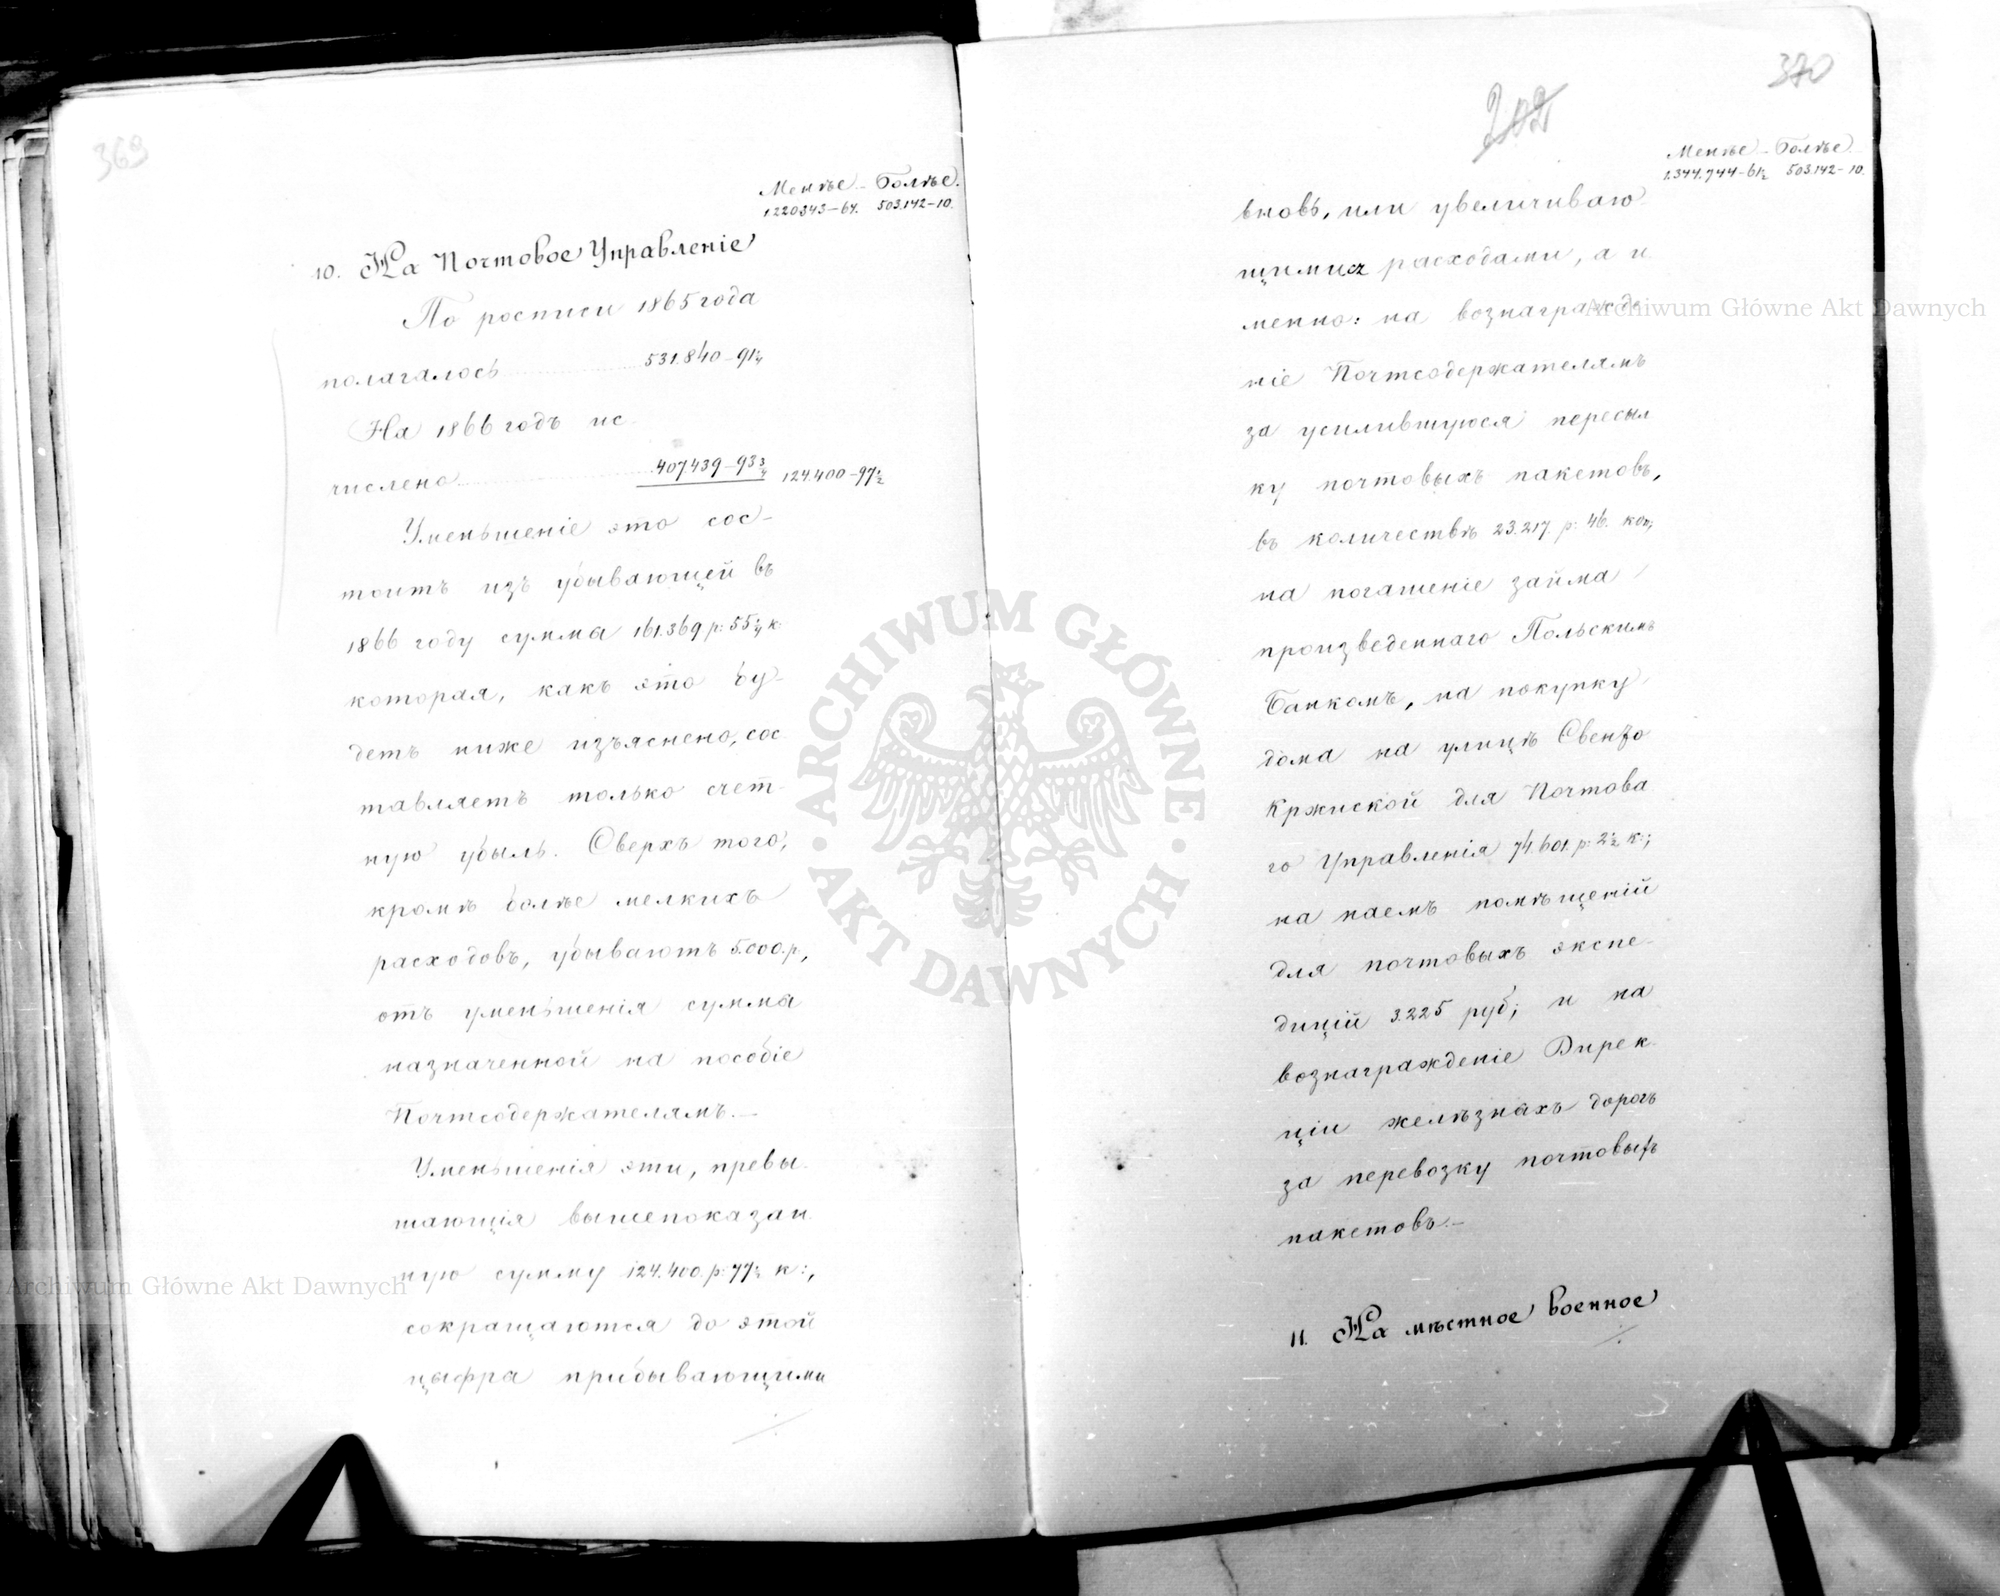 369
Менѣе – Болѣе.
1220343–64. 503.142–10.
10. На Почтовое Управленіе
По росписи 1865 года
полагалось 531.840–91¼
На 1866 годъ ис-
числено 407439–93¾ 124.400–97½
Уменьшеніе это сос-
тоитъ изъ убывающей въ
1866 году сумма 161.369 р: 55¼ к:
которая, какъ это бу-
детъ ниже изъяснено, сос
тавляетъ только счет-
ную убыль. Сверхъ того,
кромѣ болѣе мелкихъ
расходовъ, убываютъ 5.000. р.,
отъ уменьшенія сумма
назначенной на пособіе
Почтсодержателямъ.—
Уменьшенія эти, превы-
шающія вышепоказан
ную сумму 124.400. р: 77½ к:,
сокращаются до этой
цыфра прибывающими
370
202
Менѣе – Болѣе
1.344.744–61½ 503.142–10.
вновь, или увеличиваю-
щимися расходами, а и
менно: на вознагражде
ніе Почтсодержателямъ
за усилившуюся пересыл
ку почтовыхъ пакетовъ,
въ количествѣ 23.217. р: 46. коп;
на погашеніе займа
произведеннаго Польскимъ
Банкомъ, на покупку
дома на улицѣ Свенто
Кржиской для Почтова
го Управленія 74.601. р: 2½ к:;
на наемъ помѣщеній
для почтовыхъ экспе-
дицій 3.225 руб; и на
вознагражденіе Дирек-
ціи желѣзныхъ дорогъ
за перевозку почтовыхъ
пакетовъ.—
11. На мѣстное военное
Archiwum Główne Akt Dawnych
Archiwum Główne Akt Dawnych
ARCHIWUM GŁÓWNE
AKT DAWNYCH